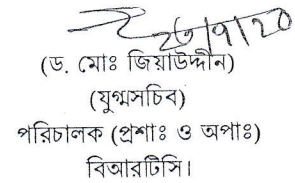 ২৩/৭/২০
(ড. মোঃ জিয়াউদ্দীন)
(যুগ্মসচিব)
পরিচালক (প্রশাঃ ও অপাঃ)
বিআরটিসি।